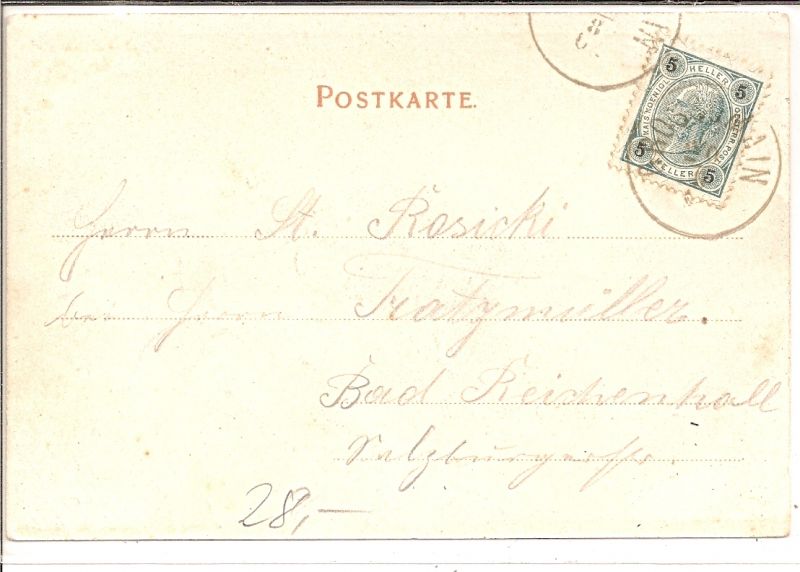 POSTKARTE.
5 HELLER 5
KAIS. KOENIGL. OESTERR. POST
5 HELLER 5
AIN
Herrn St. Rosicki
bei Herrn Tratzmüller.
Bad Reichenhall
Salzburgerstr.
28,—